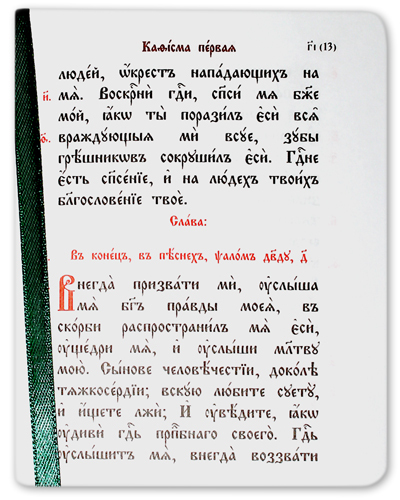 Каѳі́сма пе́рвая
г҃і (13)
люде́й, ѡ҆́крестъ напа́дающихъ на
и҃.
мѧ̀. Воскрⷭ҇нѝ гдⷭ҇и, сп҃си́ мѧ бж҃е
мо́й, ꙗ҆́кѡ ты̀ порази́лъ є҆сѝ всѧ̑
ѳ҃.
вражду́ющыѧ мѝ всꙋ́е, зꙋ́бы
грѣ́шникѡвъ сокрꙋши́лъ є҆сѝ. Гдⷭ҇не
є҆́сть сп҃се́нїе, и҆ на лю́дехъ твои́хъ
бл҃гослове́нїе твоѐ.
Сла́ва:
Въ коне́цъ, въ пѣ́снехъ, ѱало́мъ дв҃дꙋ, д҃
Внегда̀ призва́ти мѝ, ᲂу҆слы́ша
мѧ̀ бг҃ъ пра́вды моеѧ̀, въ
ско́рби распространи́лъ мѧ̀ є҆сѝ,
ᲂу҆ще́дри мѧ̀, и҆ ᲂу҆слы́ши мл҃твꙋ
мою̀. Сы́нове человѣ́честїи, доко́лѣ
тѧжкосе́рдїи; вскꙋ́ю лю́бите сꙋетꙋ̀,
и҆ и҆́щете лжѝ; И҆ ᲂу҆вѣ́дите, ꙗ҆́кѡ
ᲂу҆дивѝ гдⷭ҇ь прпⷣбнаго своего̀. Гдⷭ҇ь
ᲂу҆слы́шитъ мѧ̀, внегда̀ воззва́ти